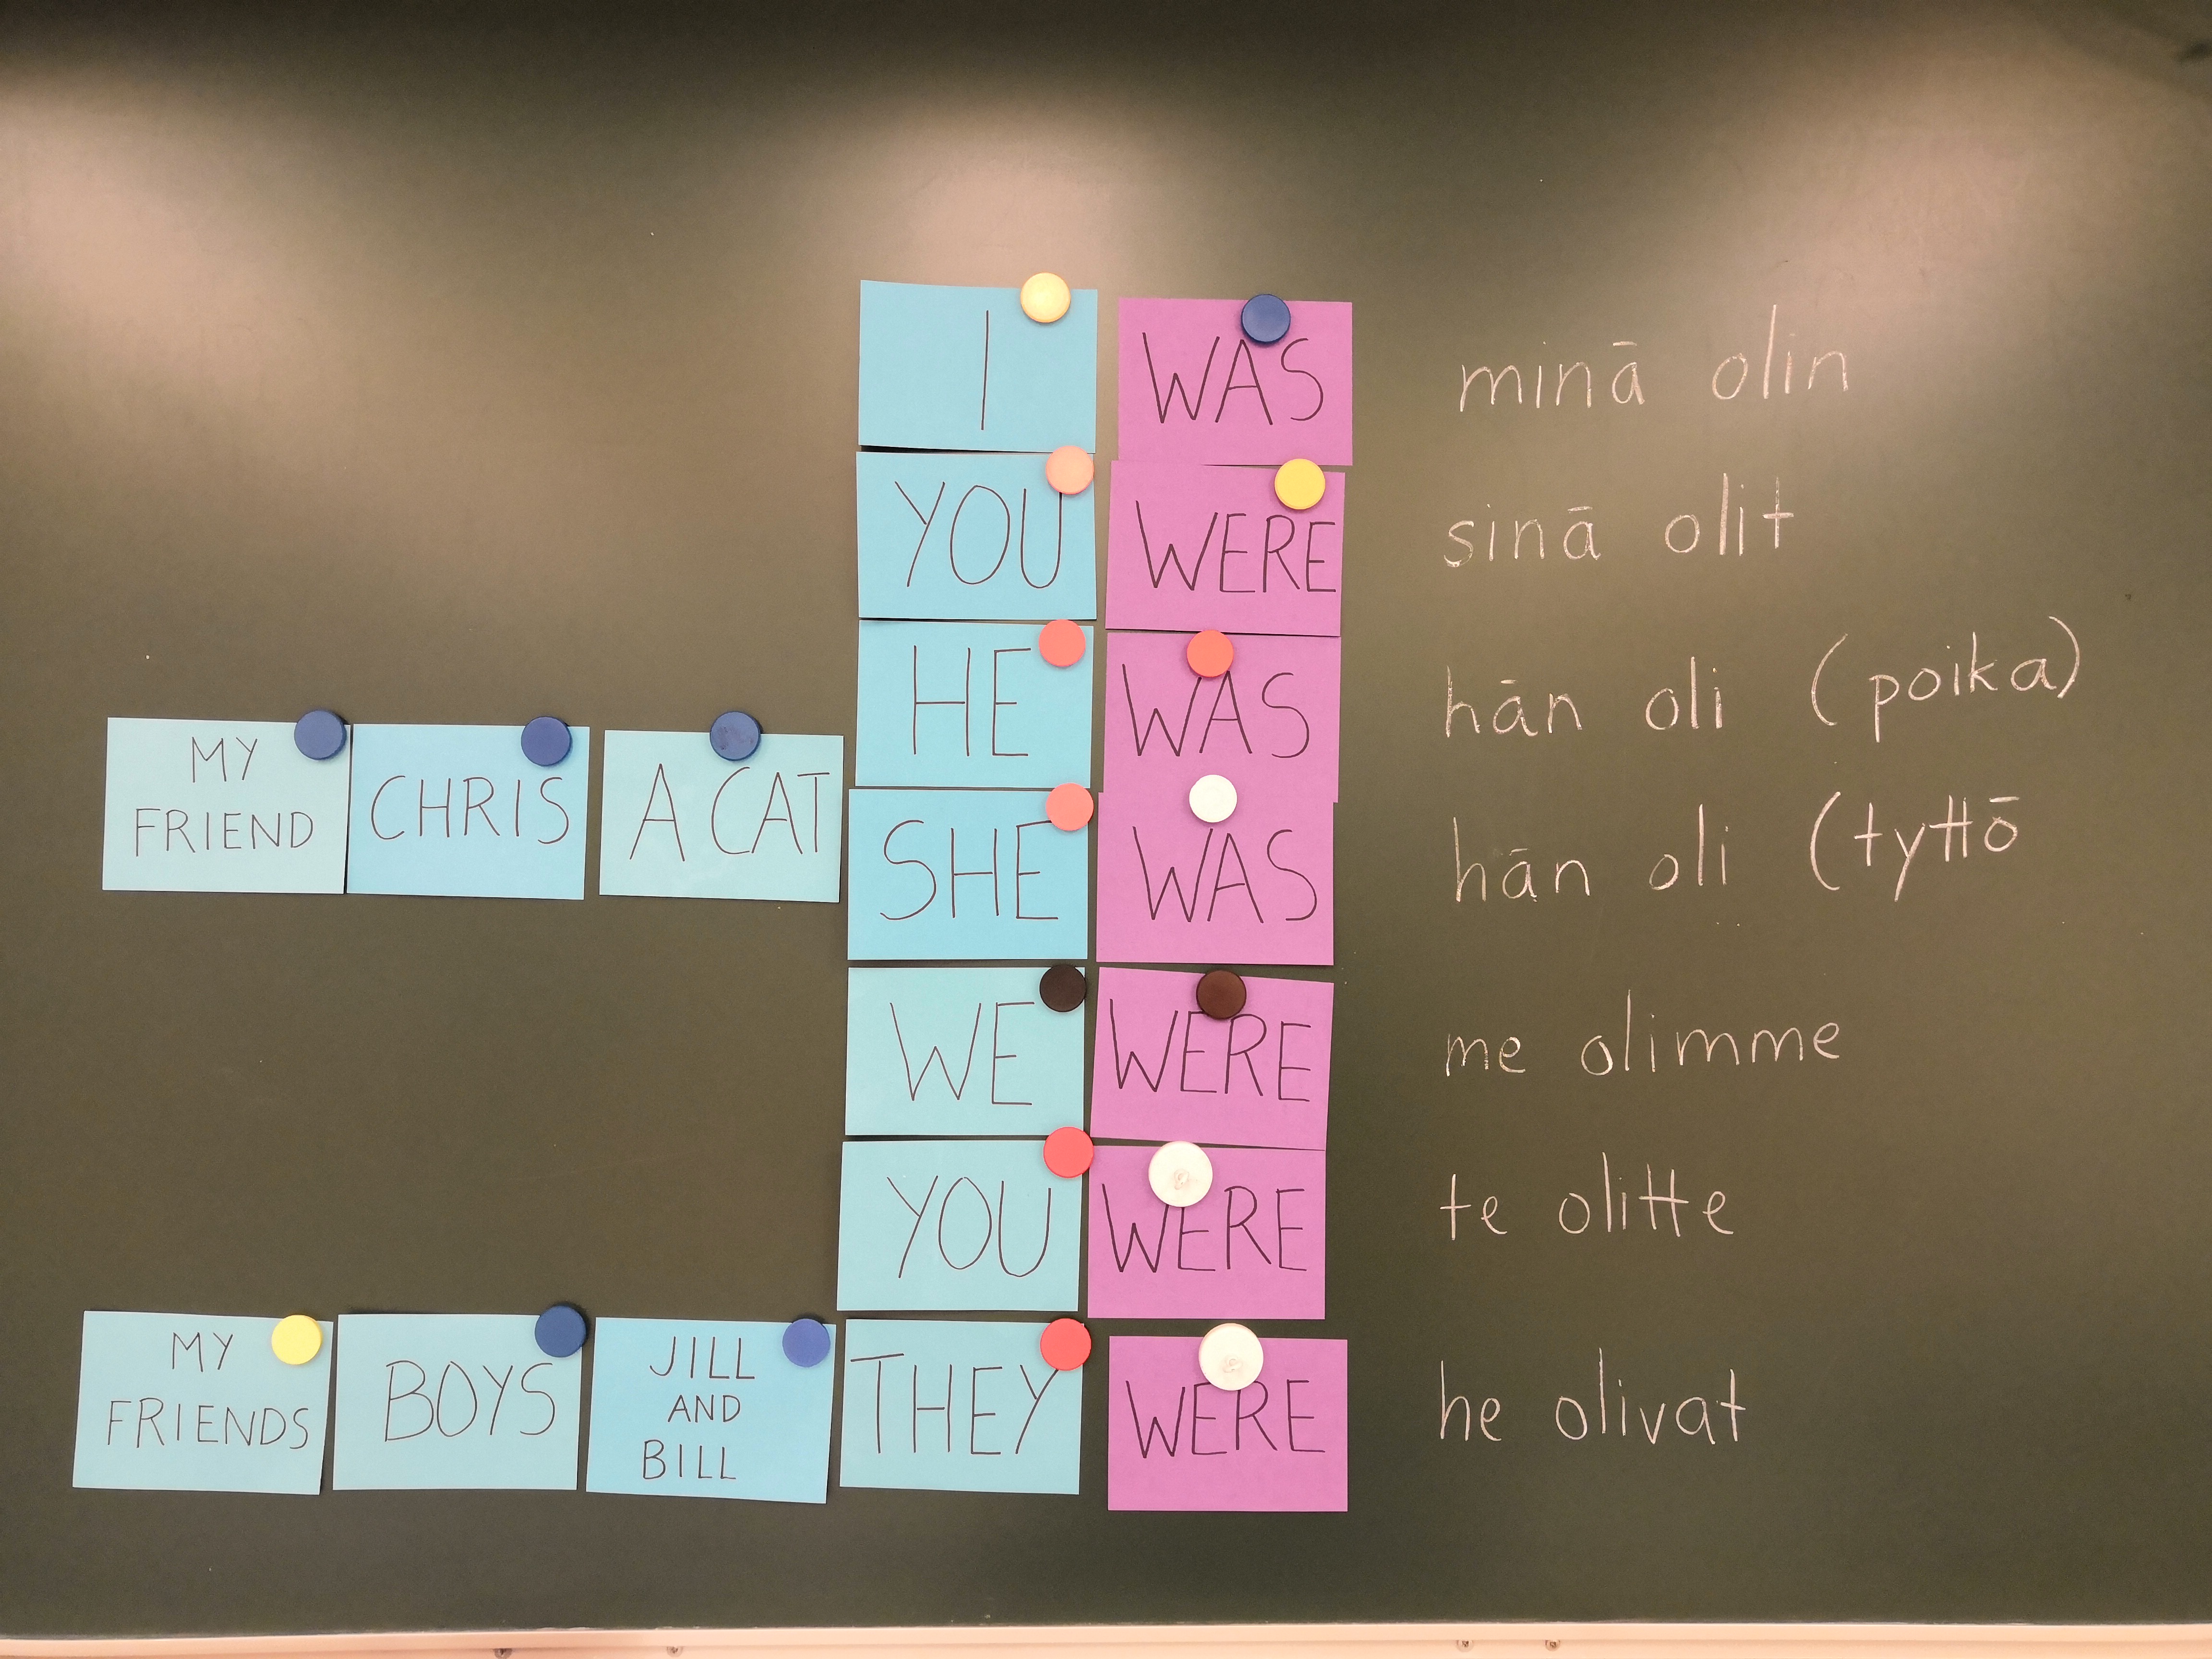 I WAS minā olin
YOU WERE sinā olit
HE WAS hān oli (poika)
MY FRIEND CHRIS A CAT SHE WAS hān oli (tyttō
WE WERE me olimme
YOU WERE te olitte
MY FRIENDS BOYS JILL AND BILL THEY WERE he olivat